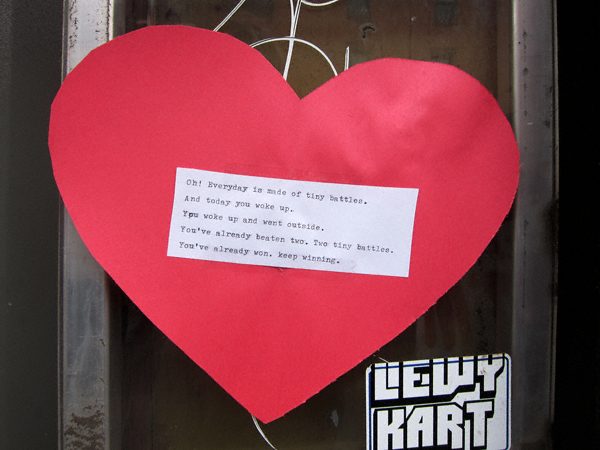 Oh! Everyday is made of tiny battles.
And today you woke up.
You woke up and went outside.
You've already beaten two. Two tiny battles.
You've already won. keep winning.
LEWY
KART